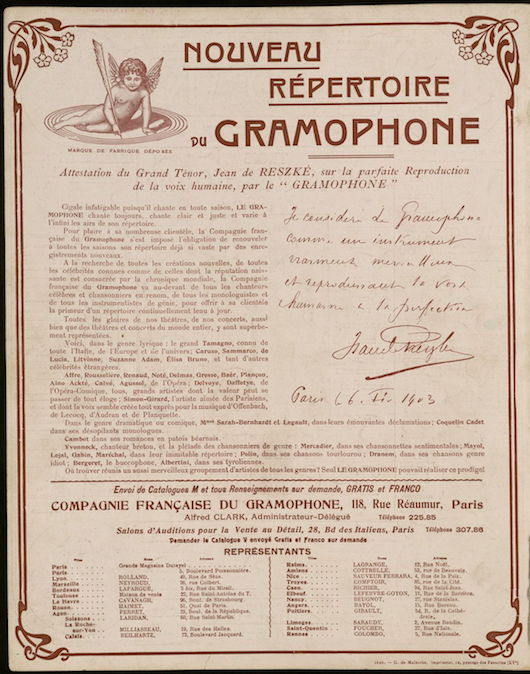 NOUVEAU
RÉPERTOIRE
DU GRAMOPHONE
MARQUE DE FABRIQUE DÉPOSÉE
Attestation du Grand Ténor, Jean de RESZKÉ, sur la parfaite Reproduction
de la voix humaine, par le “ GRAMOPHONE ”
Cigale infatigable puisqu'il chante en toute saison, LE GRA-
MOPHONE chante toujours, chante clair et juste et varie à
l'infini les airs de son répertoire.
Pour plaire à sa nombreuse clientèle, la Compagnie fran-
çaise du Gramophone s'est imposé l'obligation de renouveler
à toutes les saisons son répertoire déjà si vaste par des enre-
gistrements nouveaux.
A la recherche de toutes les créations nouvelles, de toutes
les célébrités connues comme de celles dont la réputation nais-
sante est consacrée par la chronique mondiale, la Compagnie
française du Gramophone va au-devant de tous les chanteurs
célèbres et chansonniers en renom, de tous les monologuistes et
de tous les instrumentistes de génie, pour offrir à sa clientèle
la primeur d'un répertoire continuellement tenu à jour.
Toutes les gloires de nos théâtres, de nos concerts, aussi
bien que des théâtres et concerts du monde entier, y sont superbe-
ment représentées.
Voici, dans le genre lyrique : le grand Tamagno, connu de
toute l'Italie, de l'Europe et de l'univers; Caruso, Sammarco, de
Lucia, Litvinne, Suzanne Adam, Elisa Bruno, et tant d'autres
célébrités étrangères.
Affre, Rousselière, Renaud, Noté, Delmas, Gresse, Baër, Plançon,
Aïno Ackté, Calvé, Agussol, de l'Opéra; Delvoye, Daffetye, de
l'Opéra-Comique, tous, grands artistes dont la valeur peut se
passer de tout éloge; Simon-Girard, l'artiste aimée des Parisiens,
et dont la voix semble créée tout exprès pour la musique d'Offenbach,
de Lecocq, d'Audran et de Planquette.
Dans le genre dramatique ou comique, Mmes Sarah-Bernhardt et Legault, dans leurs émouvantes déclamations; Coquelin Cadet
dans ses désopilants monologues.
Cambot dans ses romances en patois béarnais.
Yvonneck, chanteur breton, et la pléiade des chansonniers de genre : Mercadier, dans ses chansonnettes sentimentales; Mayol,
Lejal, Gabin, Maréchal, dans leur inimitable répertoire; Polin, dans ses chansons tourlourou; Dranem, dans ses chansons genre
idiot; Bergeret, le buccophone, Albertini, dans ses tyroliennes.
Où trouver réuni un aussi merveilleux groupement d'artistes de tous les genres? Seul LE GRAMOPHONE pouvait réaliser ce prodige!
Je considère le Gramophone
comme un instrument
vraiment merveilleux
et reproduisant la voix
humaine à la perfection
Jean de Reszké
Paris 16 1903
Envoi de Catalogues M et tous Renseignements sur demande, GRATIS et FRANCO
COMPAGNIE FRANÇAISE DU GRAMOPHONE, 118, Rue Réaumur, Paris
Alfred CLARK, Administrateur-Délégué Téléphone 225.85
Salons d'Auditions pour la Vente au Détail, 28, Bd des Italiens, Paris Téléphone 307.86
Demander le Catalogue V envoyé Gratis et Franco sur demande
REPRÉSENTANTS
Villes Noms Adresses Villes Noms Adresses
Paris Grands Magasins Dufayel
Paris 5, Boulevard Poissonnière.
Lyon ROLLAND,
Marseille NEYROUD,
Bordeaux LAFARGUE,
Toulouse Maison de vente
Le Havre CAVANAGH,
Rouen HAIMET,
Agen FERRET,
Soissons LARIDAN, Rue Saint-Martin.
La Roche-
sur-Yon MILLIASSEAU, Rue des Halles.
Calais BEILHARTE, 73, Boulevard Jacquard.
Reims LAGRANGE, Rue Noël.
Amiens COTTRELLE, rue de Beauvais.
Nice SAUVEUR FERRARA, 4, Rue de la Paix.
Troyes COMPTOIR,
Caen SUCHER, Rue Saint-Jean.
Elbeuf LEFEBVRE-GOTON, Rue de la Barrière.
Nancy DEUGNOT, rue Stanislas.
Angers BAYOL,
Poitiers GIBAULT, R. de la Cathé-
drale.
Limoges BARAUDY, 2, Avenue Baudin.
Saint-Quentin FOUCHER, Rue d'Isle.
Rennes COLOMBO, 5, Rue Nationale.